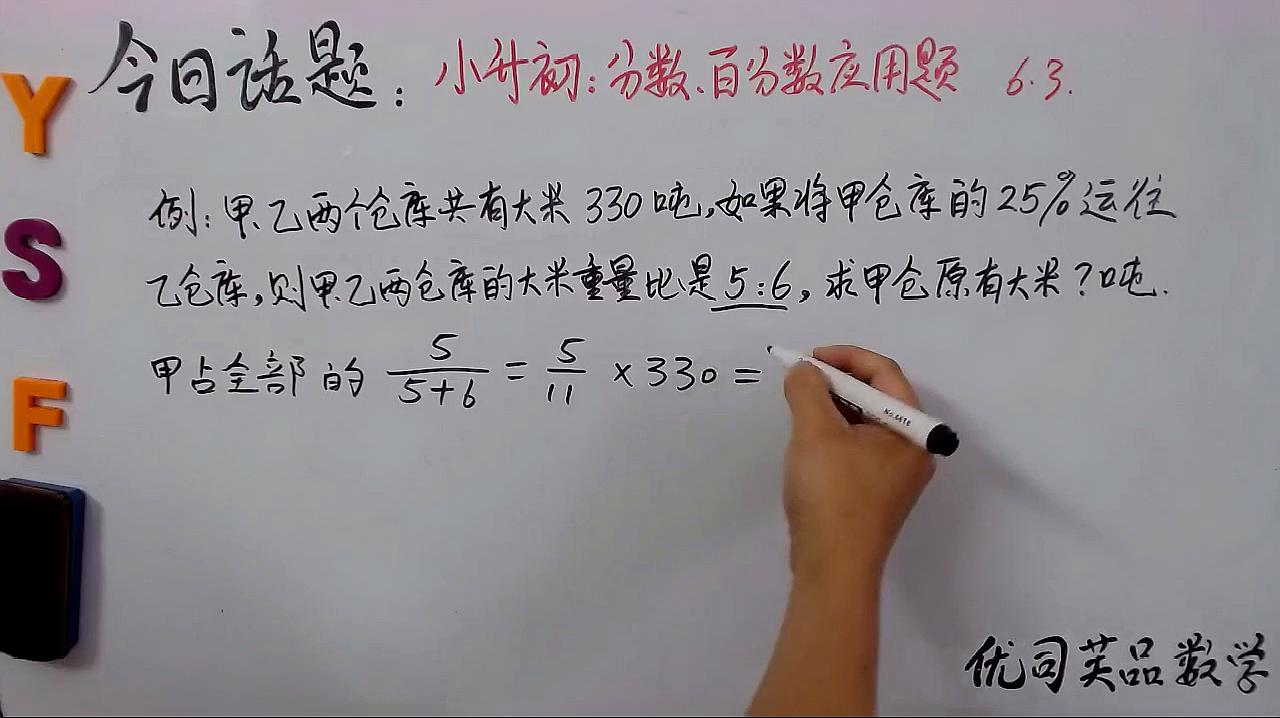 今日话题：小升初：分数、百分数应用题 6.3.
例：甲、乙两个仓库共有大米330吨，如果将甲仓库的25%运往
乙仓库，则甲、乙两仓库的大米重量比是5:6，求甲仓原有大米？吨.
甲占全部的 5/(5+6) = 5/11 ×330 =
Y
S
F
优司芙品数学